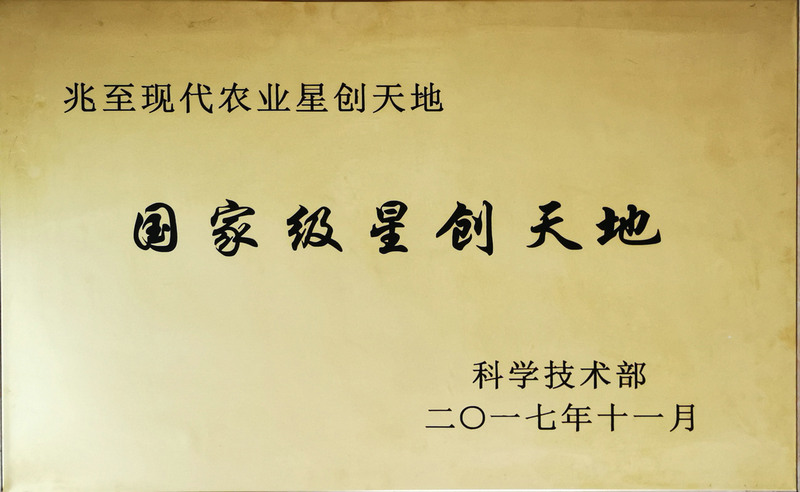 兆至现代农业星创天地
国家级星创天地
科学技术部
二〇一七年十一月